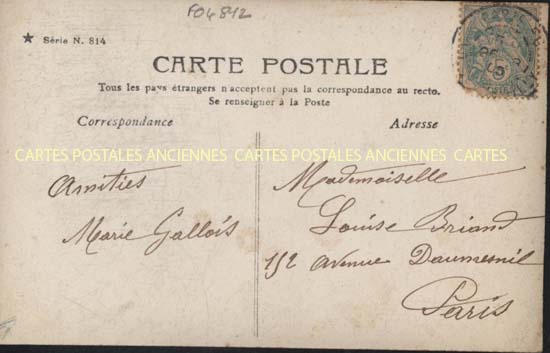 F04842
★ Série N. 814
CARTE POSTALE
Tous les pays étrangers n'acceptent pas la correspondance au recto.
Se renseigner à la Poste
Correspondance
Adresse
CARTES POSTALES ANCIENNES CARTES POSTALES ANCIENNES CARTES
Amitiés
Marie Gallois
Mademoiselle
Louise Briand
152 avenue Daumesnil
Paris